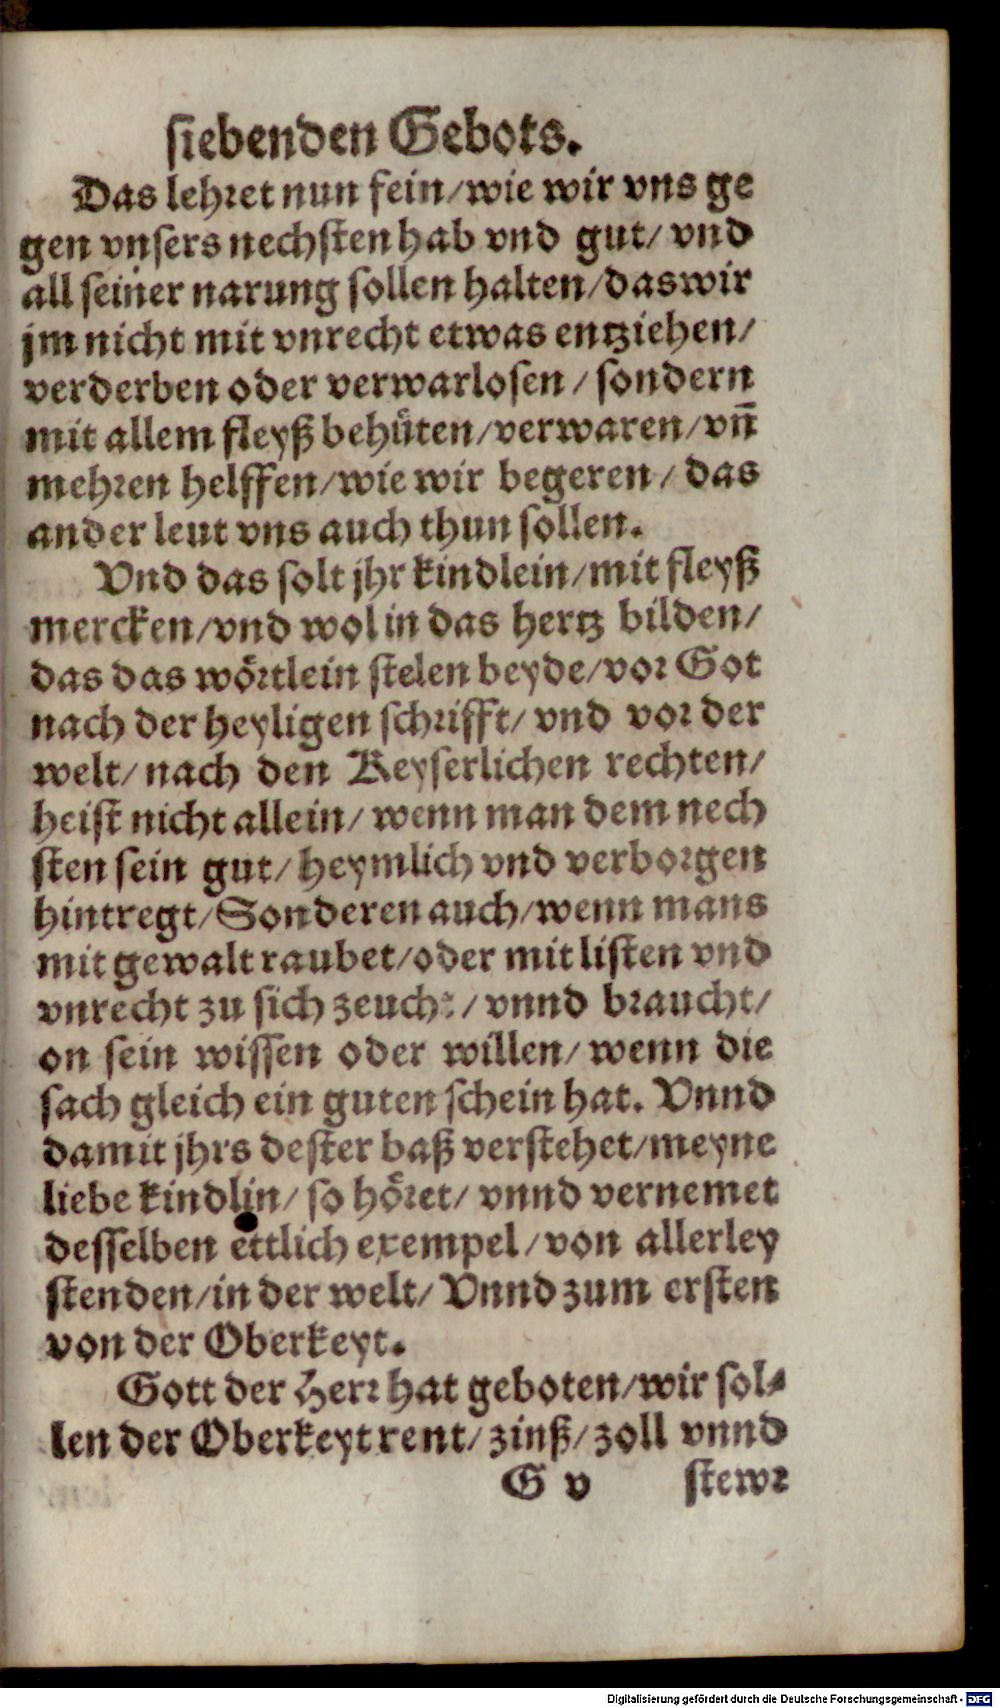 siebenden Gebots.
Das lehret nun fein/wie wir vns ge
gen vnsers nechsten hab vnd gut/ vnd
all seiner narung sollen halten/das wir
jm nicht mit vnrecht etwas entziehen/
verderben oder verwarlosen / sondern
mit allem fleyß behüten/verwaren/vn̄
mehren helffen/wie wir begeren/ das
ander leut vns auch thun sollen.
Vnd das solt jhr kindlein/mit fleyß
mercken/vnd wol in das hertz bilden/
das das wörtlein stelen beyde/vor Got
nach der heyligen schrifft/ vnd vor der
welt/ nach den Keyserlichen rechten/
heist nicht allein/ wenn man dem nech
sten sein gut/ heymlich vnd verborgen
hintregt/Sonderen auch/wenn mans
mit gewalt raubet/oder mit listen vnd
vnrecht zu sich zeucht/ vnnd braucht/
on sein wissen oder willen/ wenn die
sach gleich ein guten schein hat. Vnnd
damit jhrs dester baß verstehet/meyne
liebe kindlin/ so höret/ vnnd vernemet
desselben ettlich exempel/von allerley
stenden/in der welt/ Vnnd zum ersten
von der Oberkeyt.
Gott der Herr hat geboten/wir sol-
len der Oberkeyt rent/ zinß/ zoll vnnd
G v stewr
Digitalisierung gefördert durch die Deutsche Forschungsgemeinschaft - DFG